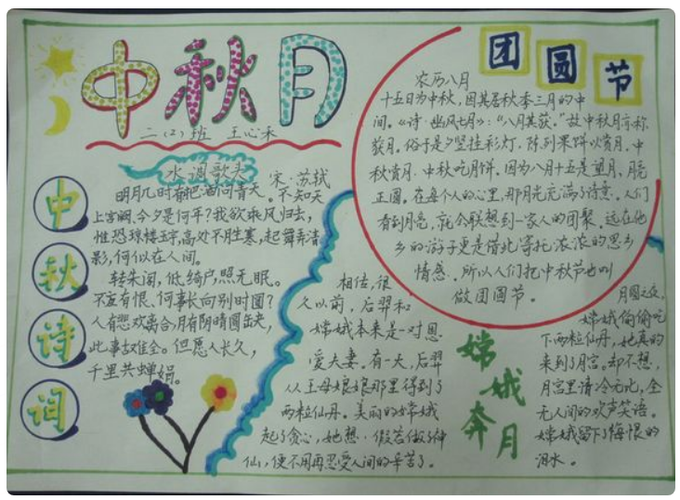 中秋月
二(2)班 王心禾
水调歌头
宋·苏轼
明月几时有把酒问青天。不知天
上宫阙,今夕是何年?我欲乘风归去,
惟恐琼楼玉宇,高处不胜寒,起舞弄清
影,何似在人间。
转朱阁,低绮户,照无眠。
不宜有恨、何事长向别时圆?
人有悲欢离合月有阴晴圆缺,
此事古难全。但愿人长久,
千里共蝉娟。
中
秋
诗
词
团圆节
农历八月
十五日为中秋,因其居秋季三月的中
间。《诗·豳风七月》:“八月其获。”故中秋月亦称
获月。俗于是夕竖挂彩灯,陈列果饼以赏月,中
秋赏月,中秋吃月饼。因为八月十五是望月,月亮
正圆。在每个人的心里,那月光充满了诗意。人们
看到月亮,就会联想到一家人的团聚。远在他
乡的游子更是借此寄托浓浓的思乡
情感。所以人们把中秋节也叫
做团圆节。
嫦娥奔月
相传,很
久以前,后羿和
嫦娥本来是一对恩
爱夫妻。有一天,后羿
从王母娘娘那里得到了
两粒仙丹。美丽的嫦娥
起了贪心,她想,假若做了神
仙,便不用再忍受人间的辛苦了。
月圆之夜,
嫦娥偷偷吃
下两粒仙丹,她真的
来到了月宫。却不想,
月宫里清冷无比,全
无人间的欢声笑语。
嫦娥留下了悔恨的
泪水。